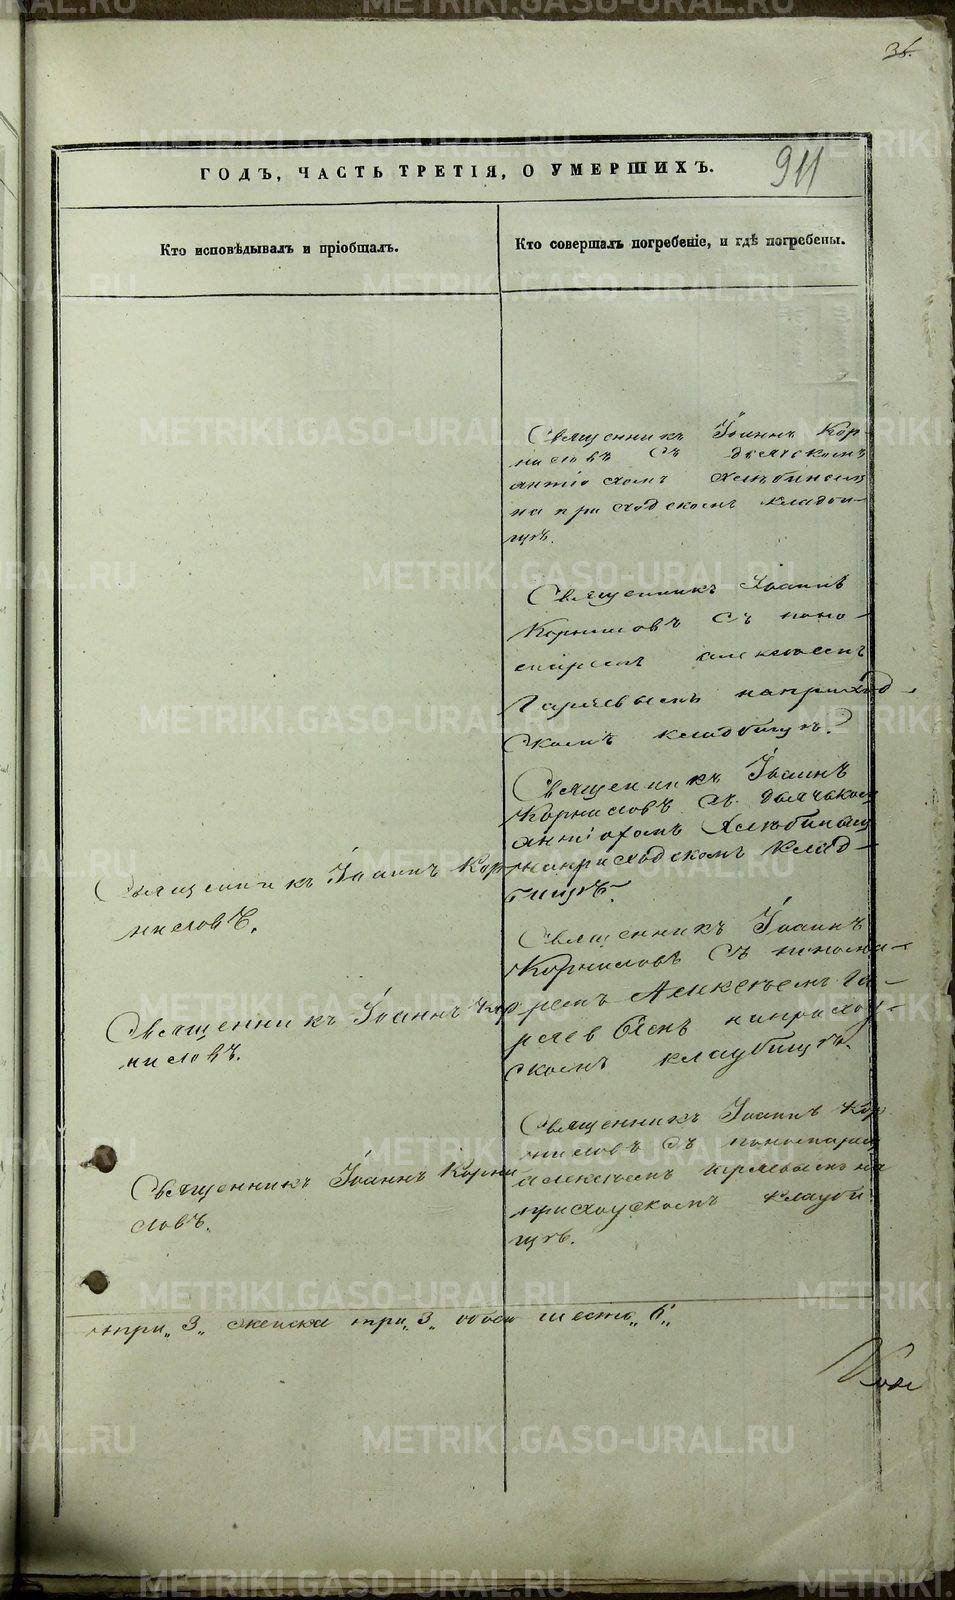 35.
911
ГОДЪ, ЧАСТЬ ТРЕТІЯ, О УМЕРШИХЪ.
Кто исповѣдывалъ и пріобщалъ.
Кто совершалъ погребеніе, и гдѣ погребены.
Священникъ Іоаннъ Кор-
ниловъ съ дьячкомъ
антіохомъ Хлѣбинымъ
на приходскомъ кладби-
щѣ.
Священникъ Іоаннъ
Корниловъ съ поно-
маремъ алексѣемъ
на приход-
скомъ кладбищѣ.
Священникъ Іоаннъ
Корниловъ съ дьячькомъ
антіохомъ Хлѣбинымъ
на приходскомъ клад-
бищѣ.
Священникъ Іоаннъ Кор
ниловъ.
Священникъ Іоаннъ
Корниловъ съ понома-
ремъ Алексѣемъ
на приход-
скомъ кладбищѣ.
Священникъ Іоаннъ Кор
ниловъ.
Священникъ Іоаннъ Кор
ниловъ съ пономаремъ
алексѣемъ на
приходскомъ кладби
щѣ.
Священникъ Іоаннъ Корни
ловъ.
три „3„ женска три „3„ обоего шесть „6„
METRIKI.GASO-URAL.RU